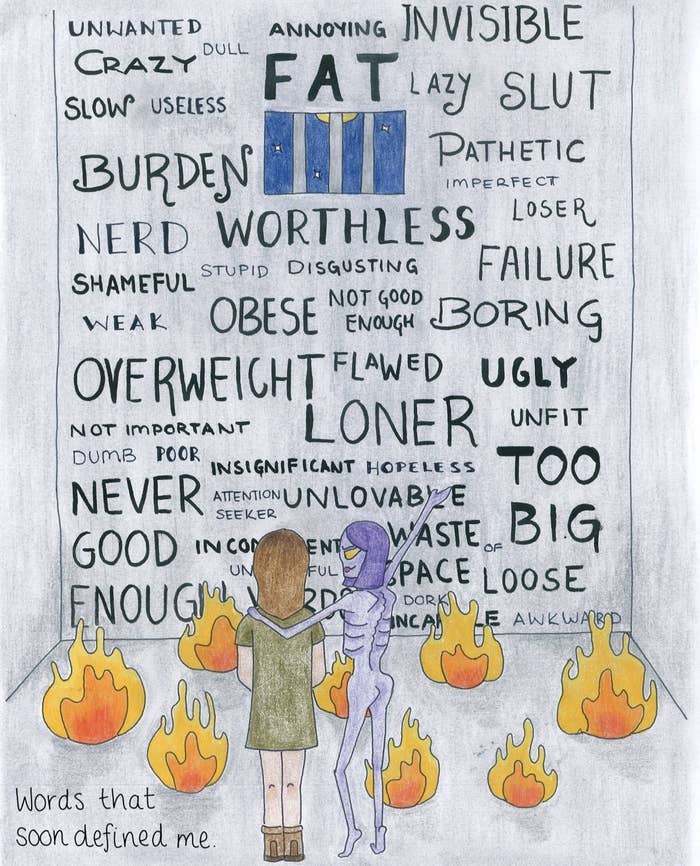 UNWANTED ANNOYING INVISIBLE
CRAZY DULL FAT LAZY SLUT
SLOW USELESS
BURDEN PATHETIC
IMPERFECT
NERD WORTHLESS LOSER
SHAMEFUL STUPID DISGUSTING FAILURE
WEAK OBESE NOT GOOD ENOUGH BORING
OVERWEIGHT FLAWED UGLY
NOT IMPORTANT LONER UNFIT
DUMB POOR
INSIGNIFICANT HOPELESS TOO
NEVER ATTENTION SEEKER UNLOVABLE
GOOD WASTE OF BIG
SPACE LOOSE
ENOUGH DORK
AWKWARD
Words that
soon defined me.